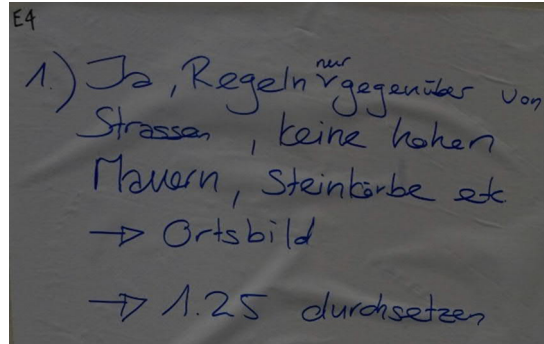 E4
1.) Ja, Regeln nur gegenüber von
Strassen, keine hohen
Mauern, Steinkörbe etc
→ Ortsbild
→ 1.25 durchsetzen